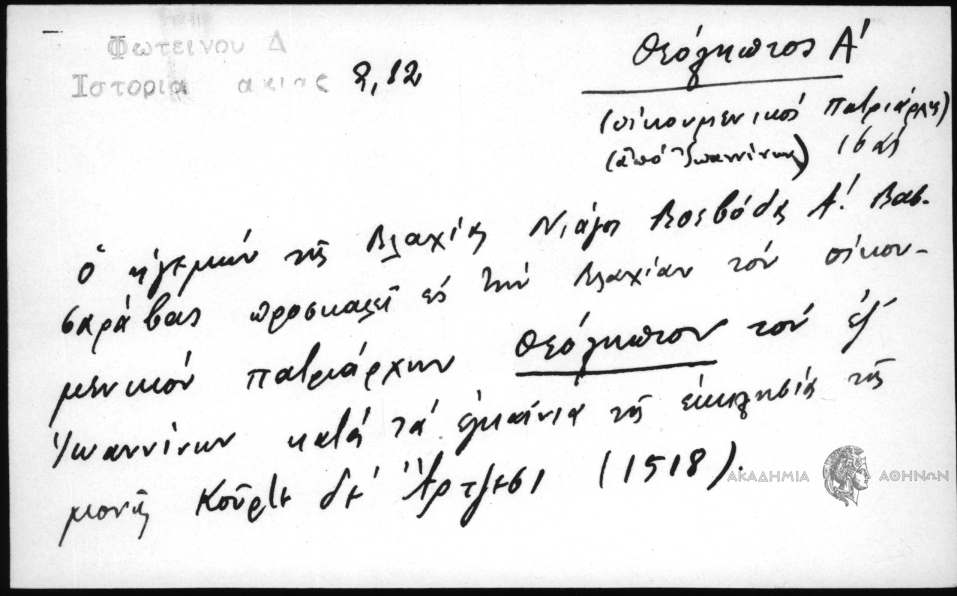 Φωτεινου Δ
Ιστορια ακιας 2,82
Θεόληπτος Α!
(οἰκουμενικός Πατριάρχης)
(ἀπό Ἰωαννίνων)
Ὁ ἡγεμών τῆς Βλαχίας Νιάγος Βοεβόδας Α! Βασ-
σαράβας προσκαλεῖ εἰς τήν Βλαχίαν τόν οἰκου-
μενικόν πατριάρχην Θεόληπτον τόν ἐξ
Ἰωαννίνων κατά τά ἐγκαίνια τῆς ἐκκλησίας τῆς
μονῆς Κοῦρτε δέ Ἄρτζεσι (1518).
ΑΚΑΔΗΜΙΑ ΑΘΗΝΩΝ